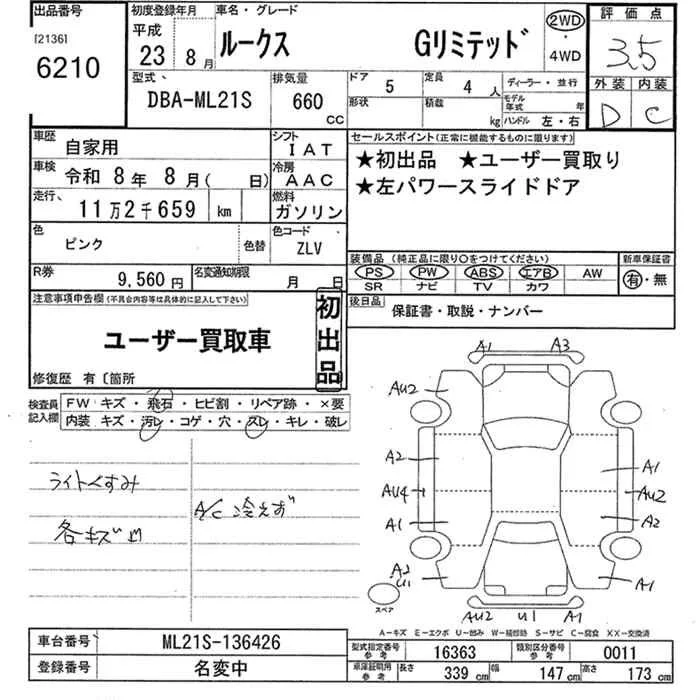 出品番号 初度登録年月 車名・グレード 評価点
[2136] 6210 平成 23 8月 ルークス Gリミテッド 2WD ・ 4WD 3.5
型式、 排気量 ドア 5 定員 4 人 ディーラー・並行 外装 内装
DBA-ML21S 660 CC 形状 積載 kg モデル年式 年 ハンドル 左・右 D C
車歴 自家用 シフト IAT セールスポイント(正常に機能するものに限ります)
車検 令和 8年 8月( 日) 冷房 AAC ★初出品 ★ユーザー買取り
走行、 11万2千659 km 燃料 ガソリン ★左パワースライドドア
色 ピンク 色替 色コード ZLV
装備品(純正品に限り○をつけてください) 新車保証書
R券 9,560円 名変通知期限 月 日 PS PW ABS エアB AW 有・無
SR ナビ TV カワ
注意事項申告欄(不具合内容等は具体的に記入して下さい) 初出品 後日品 保証書・取説・ナンバー
ユーザー買取車
修復歴 有〔箇所
検査員記入欄 FW キズ・飛石・ヒビ割・リペア跡・×要
内装 キズ・汚レ・コゲ・穴・スレ・キレ・破レ
ライトくすみ
A/C 冷えず
各キズ凹
A1 A3
AU2
A2 A1
AU4 AU2
A1 A2
A2
U1 A1
スペア
AU2 U1 A1
A-キズ E-エクボ U-凹み W-補修跡 S-サビ C-腐食 XX-交換済
車台番号 ML21S-136426 型式指定番号 参考 16363 類別区分番号 参考 0011
登録番号 名変中 車庫証明用 参考 長さ 339cm 幅 147cm 高さ 173cm